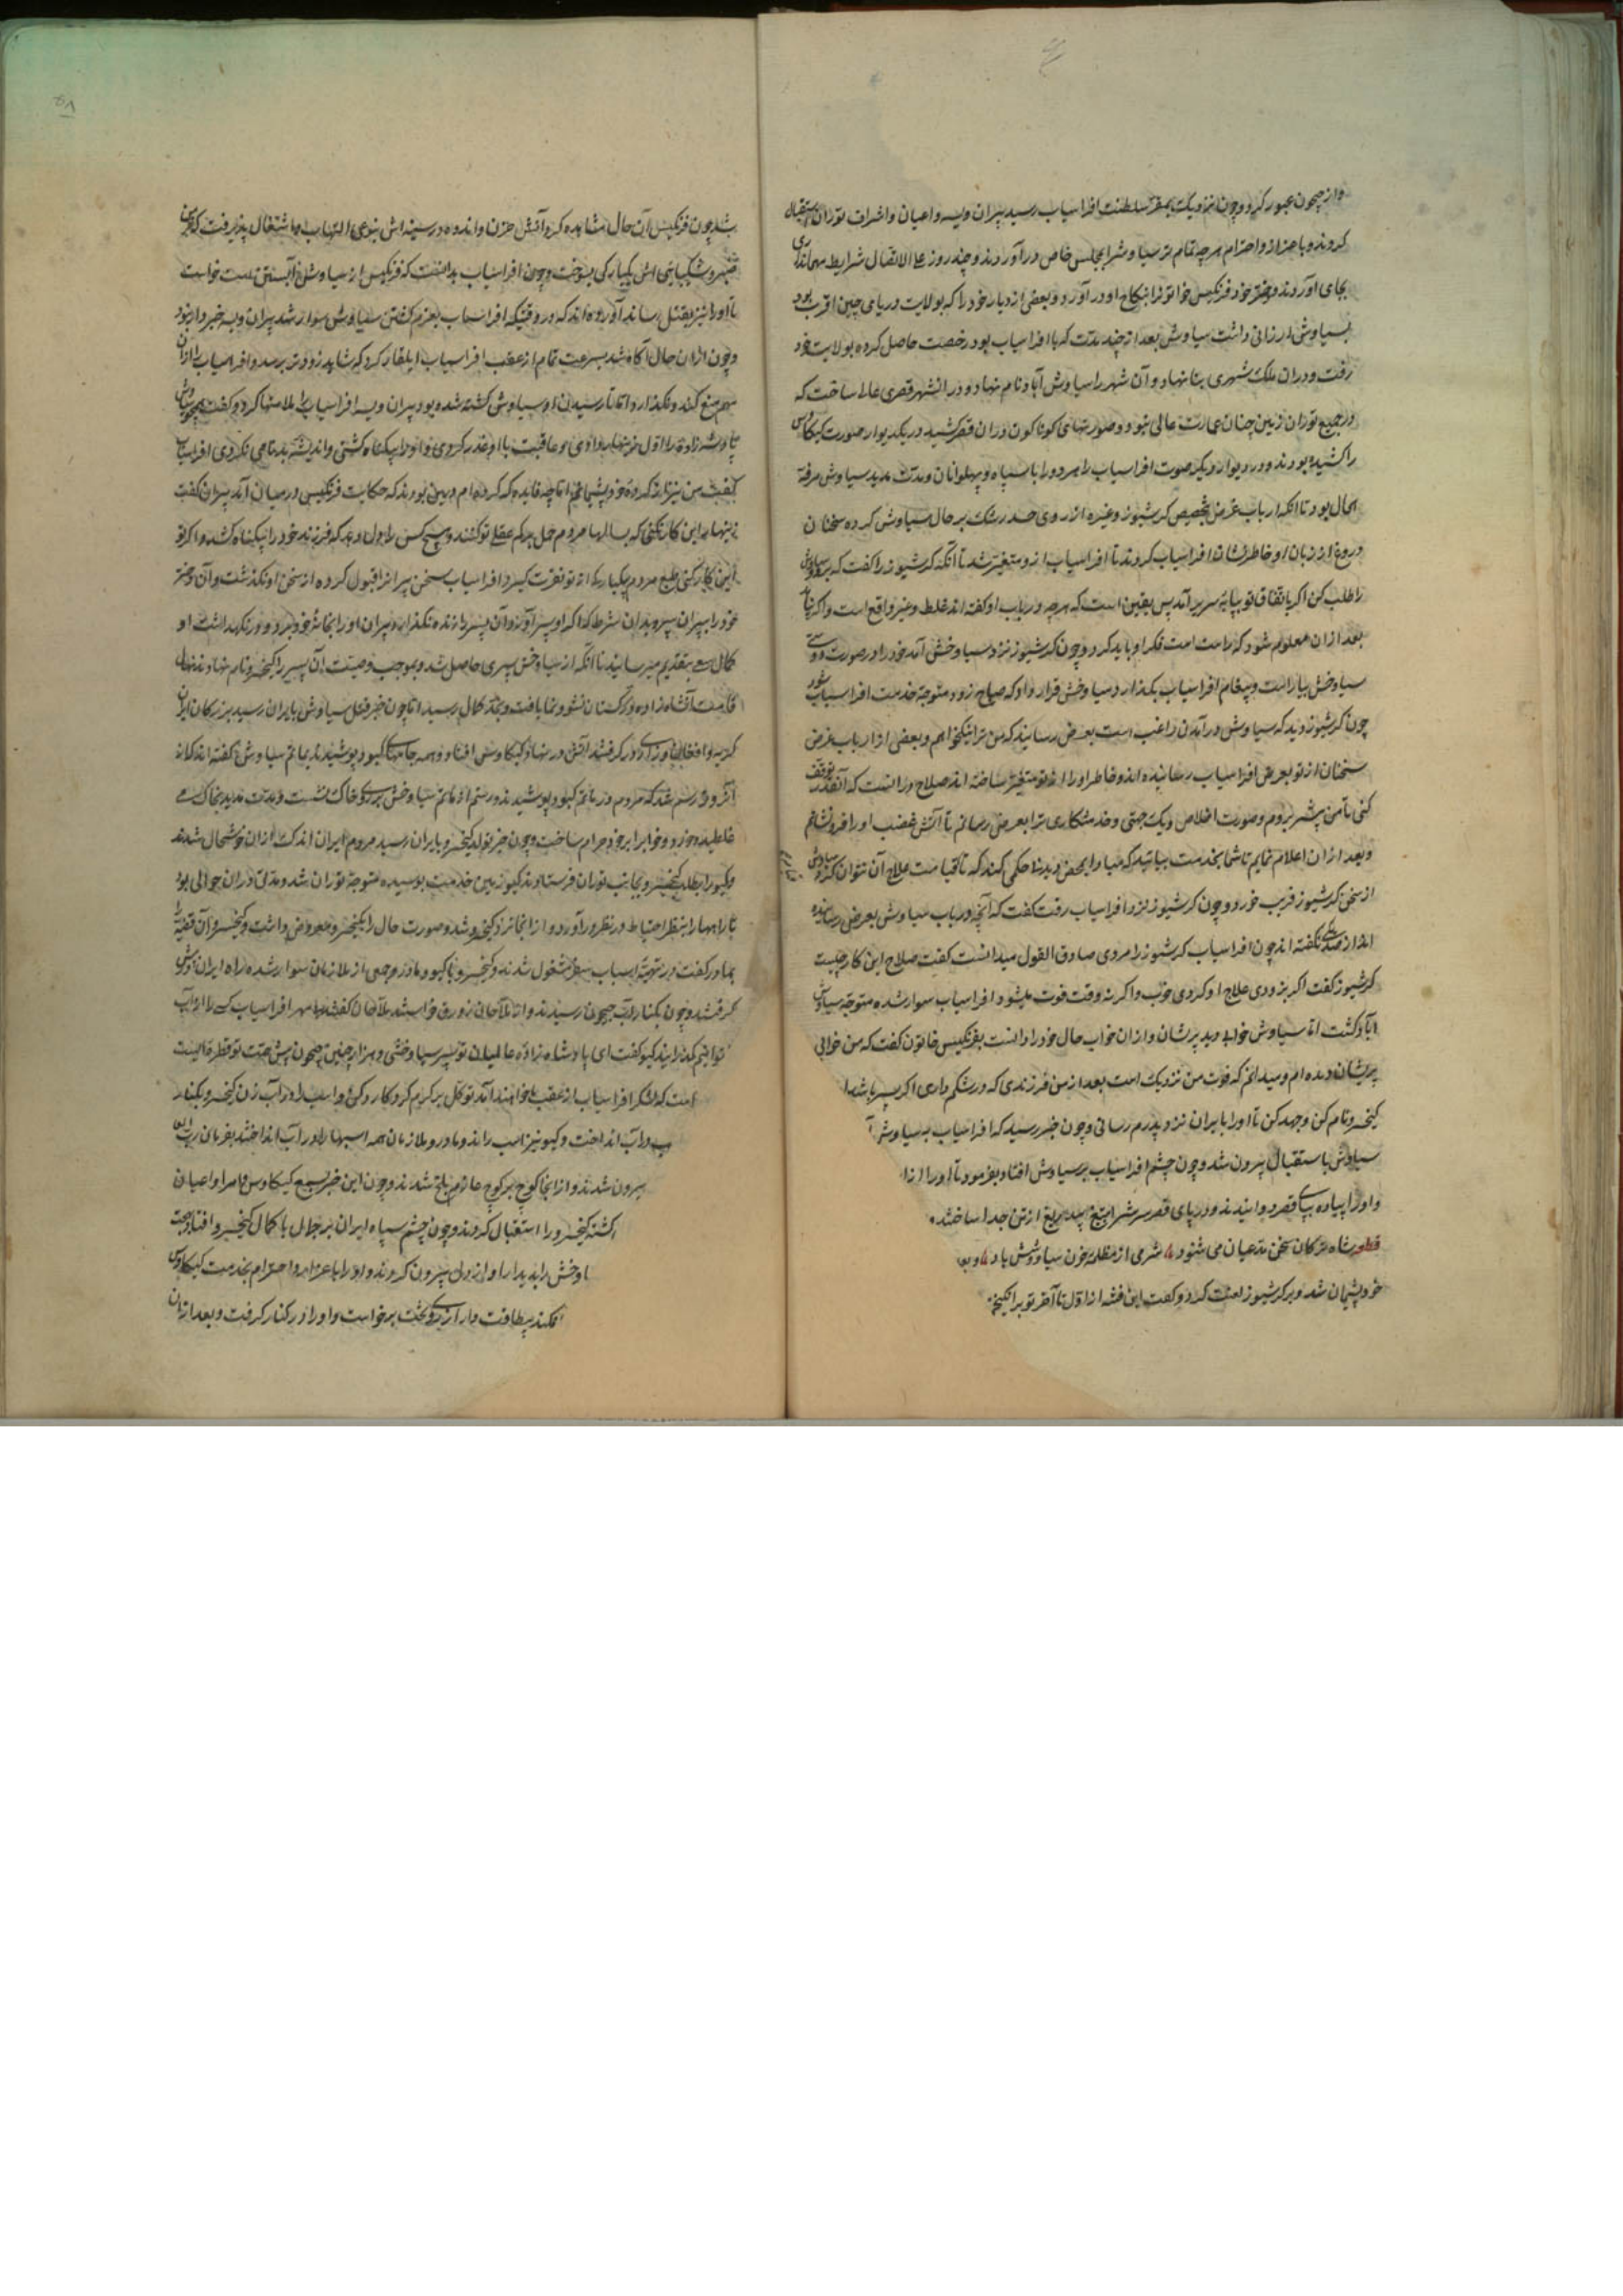 و از جیحون عبور کرد و چون نزدیک بمقر سلطنت افراسیاب رسید پیران ویسه و اعیان و اشراف توران استقبال
کردند و باعزاز و احترام هر چه تمام تر سیاوش را بمجلس خاص درآوردند و چند روز علی الاتصال شرایط مهمانداری
بجای آوردند و دختر خود فرنکیس خاتون را بنکاح او درآورد و بعضی از دیار خود را که بولایت دریای چین اقرب بود
بسیاوش ارزانی داشت سیاوش بعد از چند مدت که با افراسیاب بود رخصت حاصل کرده بولایت خود
رفت و دران ملک شهری بنا نهاد و آن شهر را سیاوش آباد نام نهاد و در آنشهر قصری عالی ساخت که
در جمیع توران زمین چنان عمارت عالی نبود و صورتهای کوناکون دران قصر کشید در یکدیوار صورت کیکاوس
را کشیده بودند و در دیوار دیکر صوت افراسیاب را هر دو را با سپاه و پهلوانان و مدت مدید سیاوش مرفه
الحال بود تا انکه ارباب غرض بتخصیص کرشیوز و غیره از روی حسد رشک بر حال سیاوش کرده سخنان
دروغ از زبان او خاطرنشان افراسیاب کردند تا افراسیاب ازو متغیر شد تا آنکه کرشیوز را کفت که برو سیاوش
را طلب کن اکر باتفاق تو بپایه سریر آمد پس یقین است که هر چه در باب او کفته اند غلط و غیر واقع است و اکر نیاید
بعد ازان معلوم شود که راست است فکر او باید کرد و چون کرشیوز نزد سیاوخش آمد خود را در صورت دوستی
سیاوخش بیاراست و پیغام افراسیاب بکذارد سیاوخش قرار داد که صباح زود متوجه خدمت افراسیاب شود
چون کرشیوز دید که سیاوش در آمدن راغب است بعرض رسانید که من ترا نیکخواهم و بعضی از ارباب غرض
سخنان از تو بعرض افراسیاب رسانیده اند و خاطر او را از تو متغیر ساخته اند صلاح درانست که آنقدر توقف
کنی تا من پیشتر بروم و صورت اخلاص و یک جهتی و خدمتکاری ترا بعرض رسانم تا آتش غضب او را فرونشانم
و بعد ازان اعلام نمایم تا شما بخدمت بیائید که مبادا بمحض دیدن حکمی کند که تا قیامت علاج آن نتوان کرد سیاوش
از سخن کرشیوز فریب خورد و چون کرشیوز نزد افراسیاب رفت کفت که آنچه در باب سیاوش بعرض رسانیده
اند از صد یکی نکفته اند چون افراسیاب کرشیوز را مردی صادق القول میدانست کفت صلاح این کار چیست
کرشیوز کفت اکر بزودی علاج او کردی خوب و اکر نه وقت فوت میشود افراسیاب سوار شده متوجه سیاوش
آباد کشت اما سیاوش خوابی دید پریشان و ازان خواب حال خود را دانست بفرنکیس خاتون کفت که من خوابی
پریشان دیده ام و میدانم که فوت من نزدیک است بعد از من فرزندی که در شکم داری اکر پسر باشد
کیخسرو نام کن و جهد کن تا او را بایران نزد پدرم رسانی و چون خبر رسید که افراسیاب به سیاوش
سیاوش باستقبال بیرون شد و چون چشم افراسیاب بر سیاوش افتاد بفرمود تا او را از
و او را پیاده بپای قصر دوانیدند و در پای قصر سرش را بتیغ بیدریغ از تن جدا ساختند
قطعه شاه ترکان سخن مدعیان می شنود شرمی از مظلمه خون سیاووشش باد و بعد
خود پشیمان شد و بر کرشیوز لعنت کرد و کفت این فتنه از اول تا آخر تو برانکیختی
شد چون فرنکیس آن حال مشاهده کرد آتش حزن و اندوه در سینه اش بنوعی التهاب و اشتعال پذیرفت که
صبر و شکیبائی اش یکبارکی بسوخت و چون افراسیاب بدانست که فرنکیس از سیاوش آبستن است خواست
تا او را نیز بقتل رساند آورده اند که در وقتیکه افراسیاب بعزم کشتن سیاوش سوار شد پیران ویسه خبردار نبود
و چون ازان حال آکاه شد بسرعت تمام از عقب افراسیاب ایلغار کرد که شاید زودتر برسد و افراسیاب را ازان
مهم منع کند و نکذارد اما تا رسیدن او سیاوش کشته شده بود پیران ویسه افراسیاب را ملامتها کرد و کفت همچو سیاوش
پادشه زاده را اول زینهار دادی و عاقبت با او غدر کردی و او را بیکناه کشتی و اندیشه بدنامی نکردی افراسیاب
کفت من نیز از کرده خود پشیمانم اما چه فایده که کرده ام و درین بودند که حکایت فرنکیس در میان آمد پیران کفت
زینهار این کار نکنی که بسالها مردم حمل بر کم عقلی تو کنند و هیچ کس را دل دهد که فرزند خود را بیکناه کشد و اکر تو
این کار کنی طبع مردم یکبارکی از تو نفرت کیرد افراسیاب سخن پیران را قبول کرده از سخن او نکذشت و آن دختر
خود را به پیران سپرد بدان شرط که اکر او پسر آورد آن پسر را زنده نکذارد و پیران او را بخانه خود برد و در نکهداشت او
کمال سعی بتقدیم میرسانید تا انکه از سیاوخش پسری حاصل شد و بموجب وصیت آن پسر را کیخسرو نام نهادند نهال
قامت آنشاه زاده در ترکستان نشو و نما یافت و بحد کمال رسید اما چون خبر قتل سیاوش بایران رسید بزرکان ایران
کریه و افغان و زاری در کرفتند آتش در نهاد کیکاوس افتاد و همه جامهای کبود پوشیدند بماتم سیاوش کفته اند که از
آنروز رسم شد که مردم در ماتم کبود پوشیدند و رستم از ماتم سیاوخش بر روی خاک نشست و مدت مدید بخاک می
غلطید و خورد و خواب را بر خود حرام ساخت و چون خبر تولد کیخسرو بایران رسید مردم ایران اندک ازان خوشحال شدند
و کیو را بطلب کیخسرو بجانب توران فرستادند کیو زمین خدمت بوسیده متوجه توران شد و مدتی دران حوالی بود
تا راهها را بنظر احتیاط در نظر درآورد و از انجا نزد کیخسرو شد و صورت حال را بکیخسرو معروض داشت و کیخسرو آن قضیه را
بمادر کفت در تهیه اسباب سفر مشغول شدند و کیخسرو با کیو و مادر و جمعی از ملازمان سوار شده راه ایران در پیش
کرفتند و چون بکنار آب جیحون رسیدند و از ملاحان زورق خواستند ملاحان کفتند بی مهر افراسیاب کسی را از آب
نتوانیم کذرانید کیو کفت ای پادشاه زاده عالمیان تو پسر سیاوخشی و هزار چنین جیحون پیش همت تو قطره ایست
است که لشکر افراسیاب از عقب ما خواهند آمد توکل بر کرم کردکار کن و اسب را در آب زن کیخسرو بکنار
در آب انداخت و کیو نیز اسب راند و مادر و ملازمان همه اسبها را در آب انداختند بفرمان رب العالمین
بیرون شدند و از انجا کوچ بر کوچ عازم بلخ شدند و چون این خبر بسمع کیکاوس و امرا و اعیان
کشته کیخسرو را استقبال کردند و چون چشم سپاه ایران بر جمال با کمال کیخسرو افتاد
اوخش را بدیدار او از دل بیرون کردند و او را باعزاز و احترام بخدمت کیکاوس
افکند بیطاقت وار از روی تخت برخواست و او را در کنار کرفت و بعد ازان